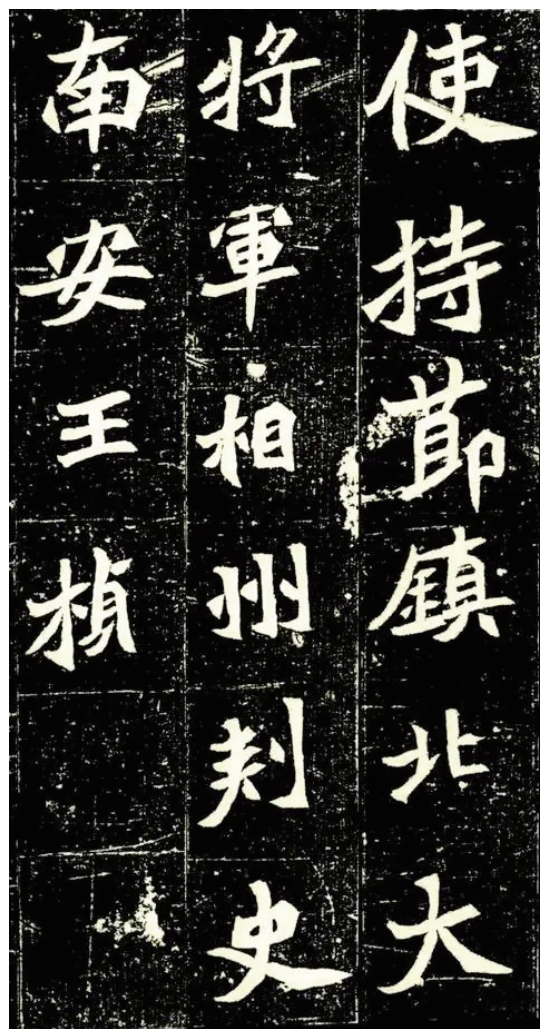 使持節鎮北大
將軍相州刺史
南安王楨